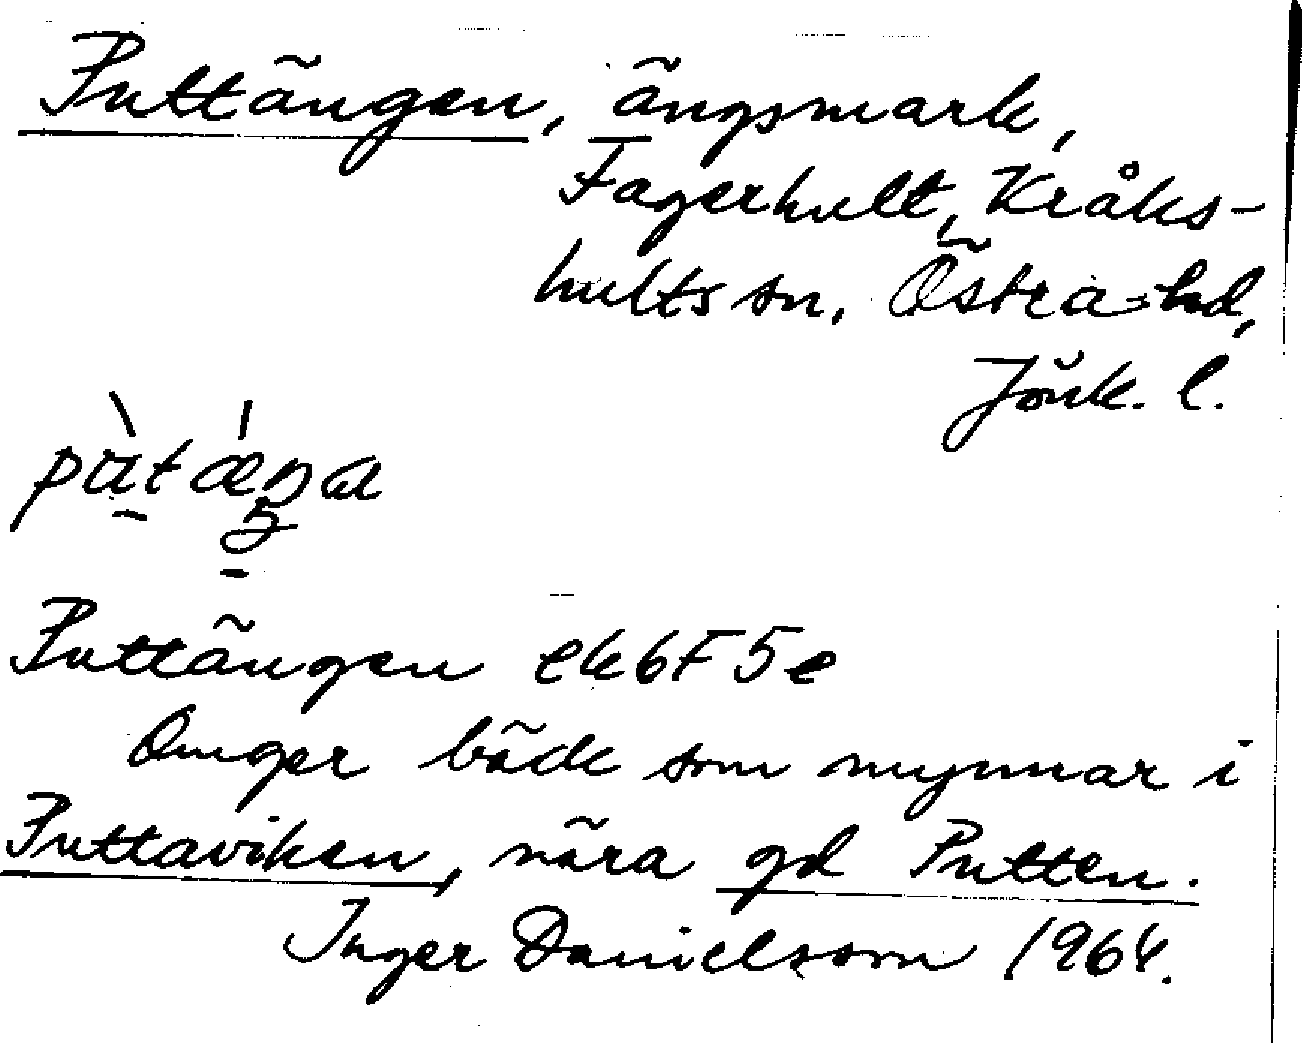 Puttängen, ängsmark,
Fagerhult, Kråks-
hults sn, Östra hd,
Jönk. l.
Puttängen ek6F5e
Omger bäck som mynnar i
Puttaviken, nära gd Putten.
Inger Danielsson 1964.